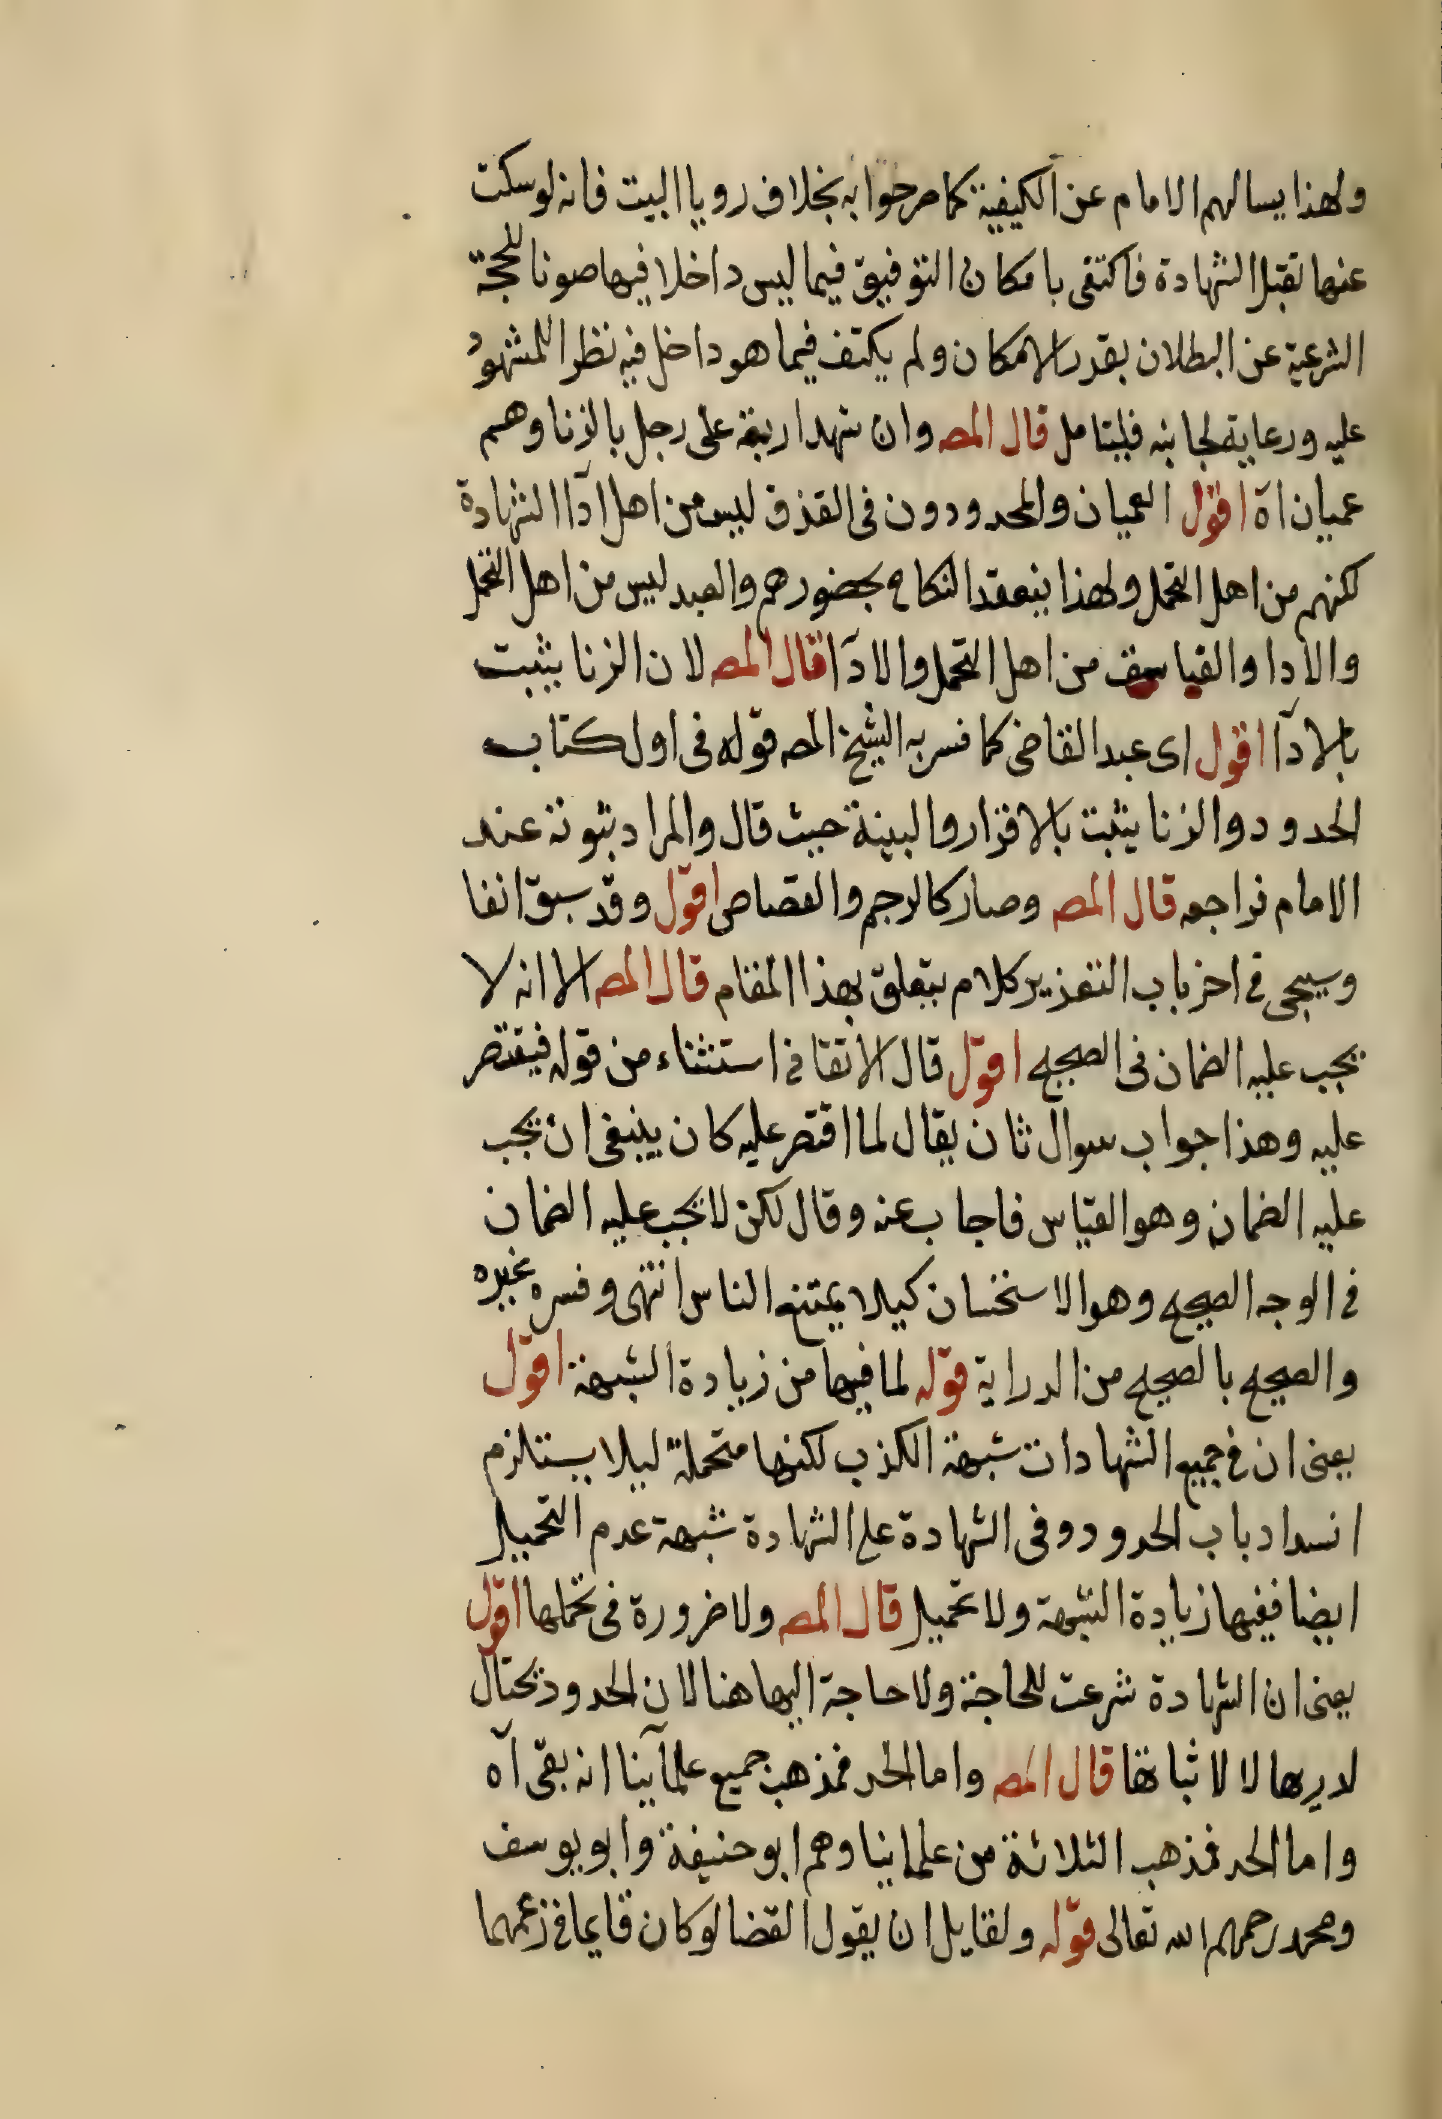 ولهذا يسالهم الامام عن الكيفية كما صرحوا به بخلاف زويا البيت فانه لوسكت
عنها تقبل الشهادة فاكتفى بامكان التوفيق فيما ليس داخلا فيها صونا للحجة
الشرعية عن البطلان بقدر الامكان ولم يكتف فيما هو داخل فيه نظرا للمشهود
عليه ورعاية لجانبه فليتامل قال المص وان شهد اربعة على رجل بالزنا وهم
عميان اه اقول العميان والمحدودون فى القذف ليس من اهل ادآ الشهادة
لكنهم من اهل التحمل ولهذا ينعقد النكاح بحضورهم والعبد ليس من اهل التحمل
والادا والفياسق من اهل التحمل والادآ قال المص لان الزنا يثبت
بالادآ اقول اى عبد القاضى كما فسر به الشيخ المص قوله فى اول كتاب
الحدود والزنا يثبت بالاقرار والبينة حيث قال والمراد ثبوته عند
الامام فراجعه قال المص وصار كالرجم والقصاص اقول وقد سبق انفا
وسيجى فى اخر باب التعزير كلام يتعلق بهذا المقام قال المص الا انه لا
يجب عليه الضمان فى الصحيح اقول قال الاتقانى استثناء من قوله فيقتصر
عليه وهذا جواب سوال ثان يقال لما اقتصر عليه كان ينبغى ان يجب
عليه الضمان وهو القياس فاجاب عنه وقال لكن لا يجب عليه الضمان
فى الوجه الصحيح وهو الاستحسان كيلا يمتنع الناس انتهى وفسره غيره
والصحيح بالصحيح من الدراية قوله لما فيها من زيادة الشبهة اقول
يعنى ان فى جميع الشهادات شبهة الكذب لكنها متحملة ليلا يستلزم
انسداد باب الحدود وفى الشهادة على الشهادة شبهة عدم التحميل
ايضا ففيها زيادة الشبهة ولا تحميل قال المص ولا ضرورة فى تحملها اقول
يعنى ان الشهادة شرعت للحاجة ولا حاجة اليها هنا لان الحدود يحتال
لدرءها لا لاثباتها قال المص واما الحد فمذهب جميع علمآينا انه بقى اه
واما الحد فمذهب الثلاثة من علماينا وهم ابو حنيفة وابو يوسف
ومحمد رحمهم الله تعالى قوله ولقايل ان يقول القضا لو كان قايما فى زعمهما